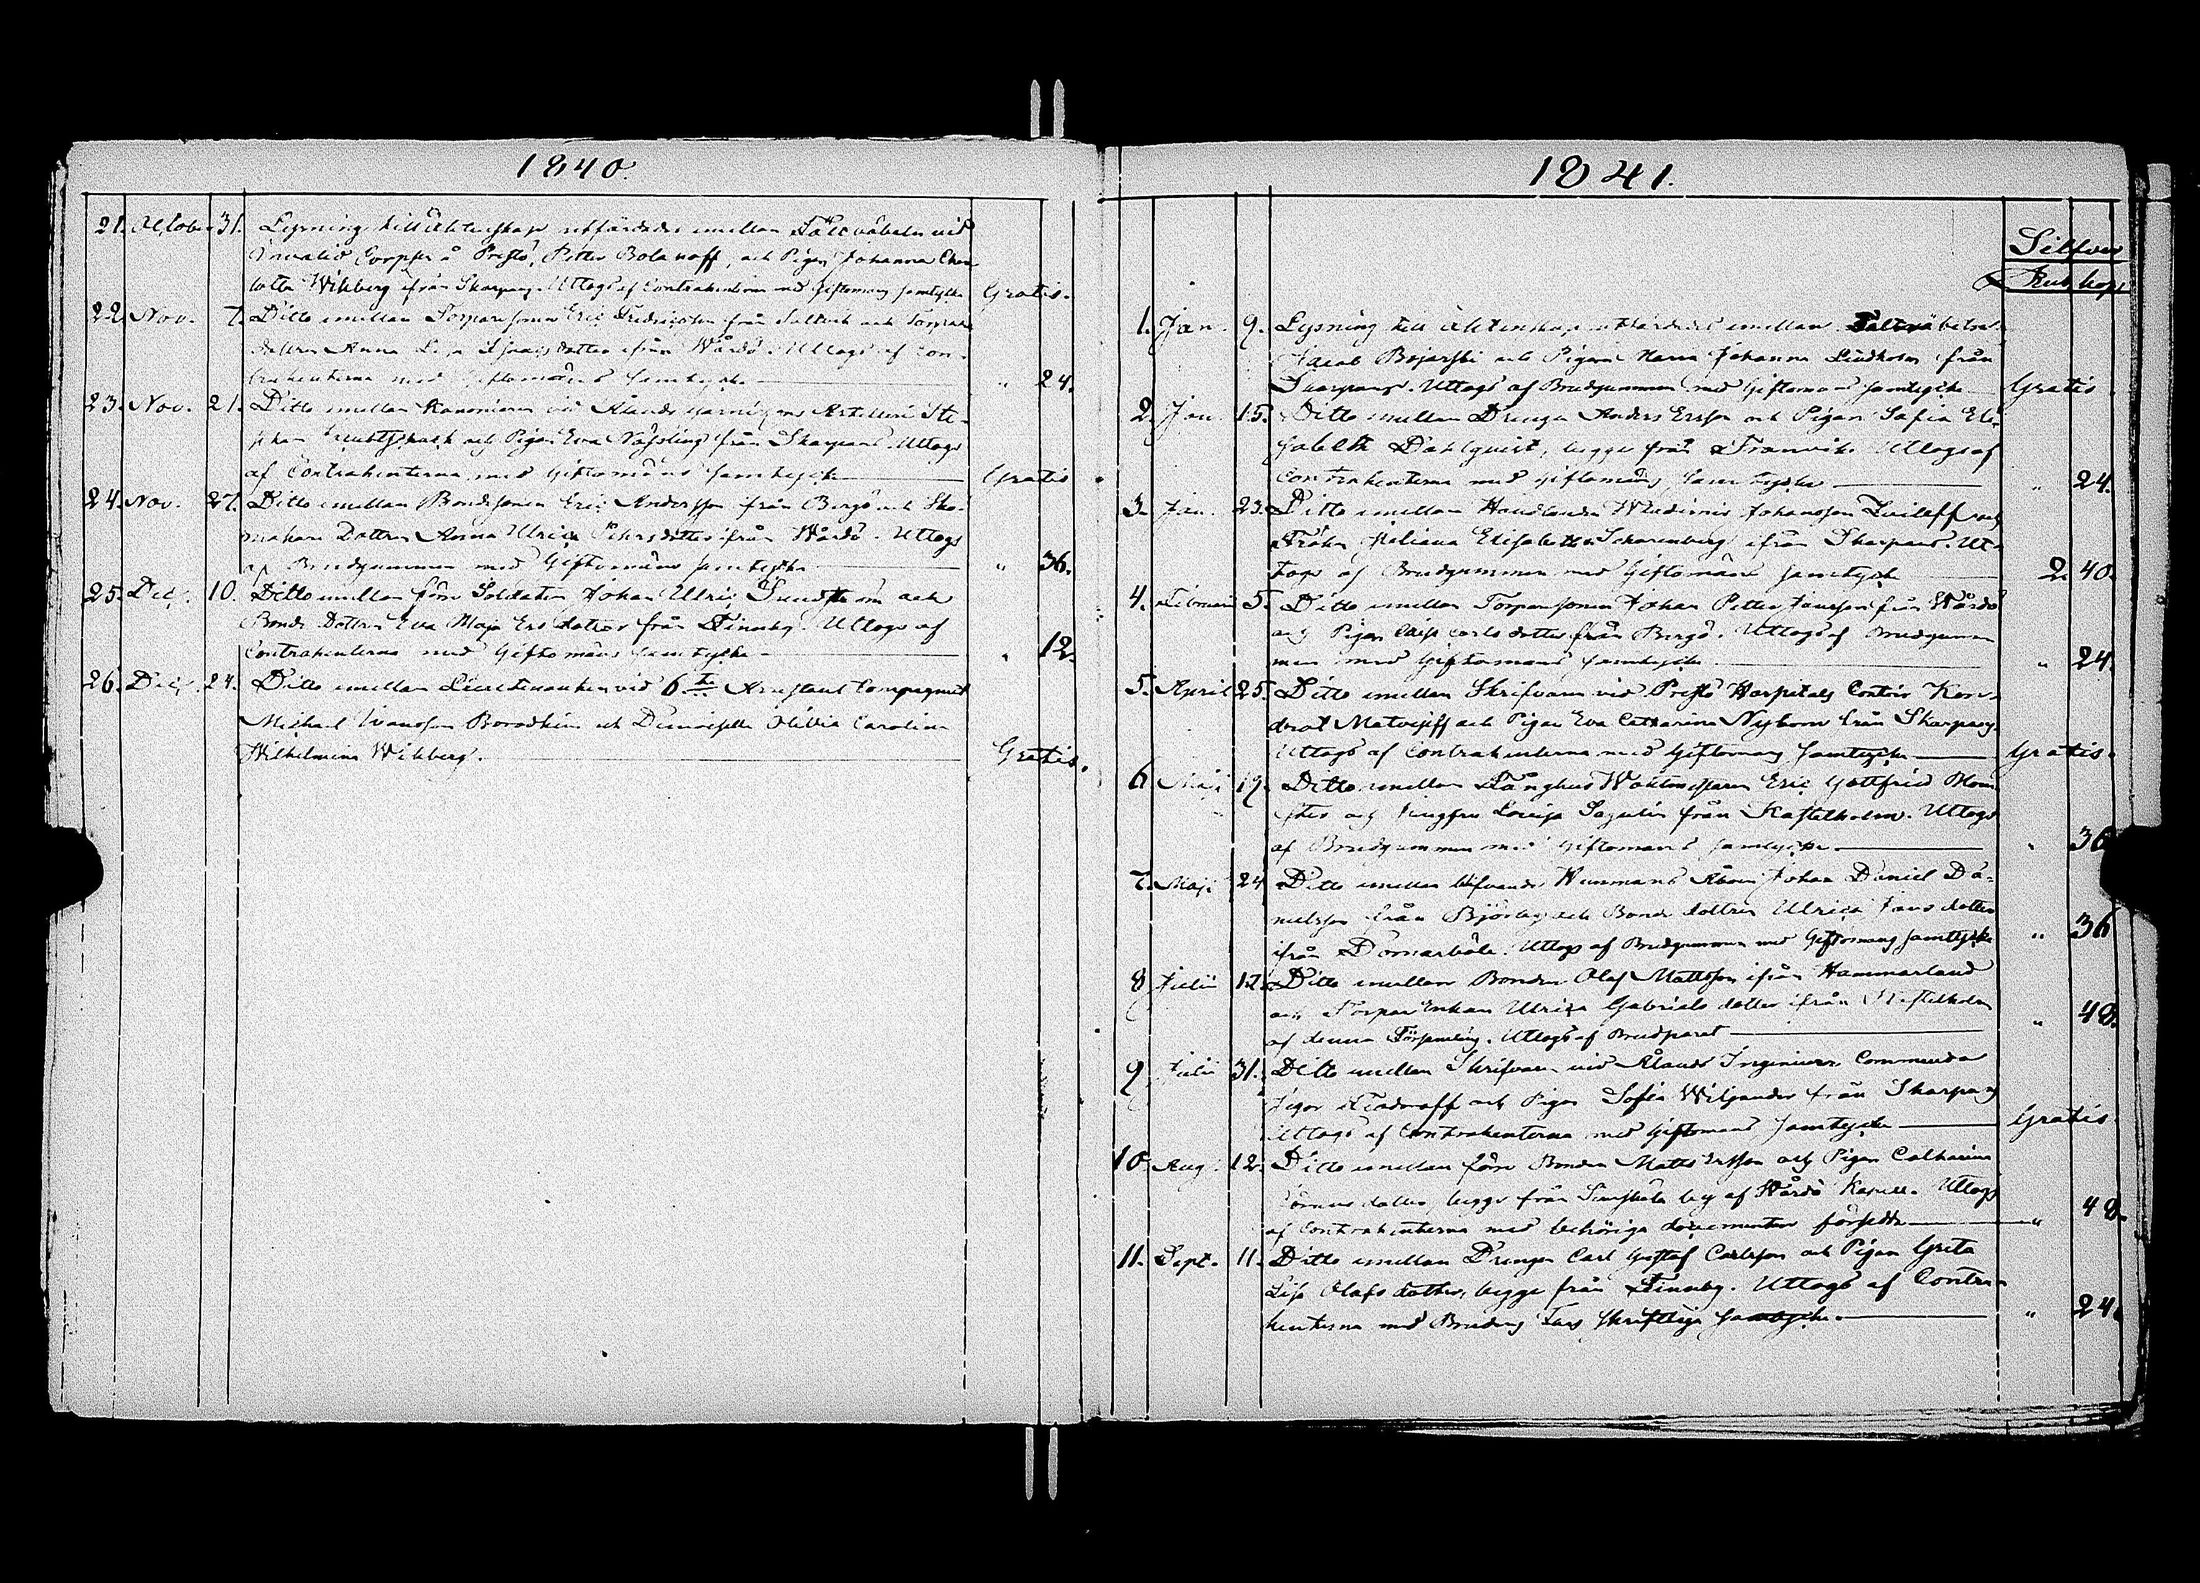 1840.
21. October 31. Lysning till ächtenskap utfärdades emellan Fältväbeln vid
Invalid Corpsen å Prestö, Petter Bolanoff, och Pigan Johanna Char-
lotta Wikberg ifrån Skarpans. Uttogs af Contrahenterna med Giftomans samtycke Gratis.
22. Nov. 7. Ditto emellan Torparesonen Eric Fredricsson från Saltvik och Torpare
dottren Anna Lisa Isaacsdotter ifrån Wårdö. Uttogs af Con-
trahenterna med Giftomans samtycke — " 24.
23. Nov. 21. Ditto emellan Kanonieren vid Ålands garnizons Artilleri Ste-
phan och Pigan Eva Nässling från Skarpans. Uttogs
af Contrahenterna med Giftomans samtycke — Gratis
24. Nov. 27. Ditto emellan Bondesonen Eric Andersson från Bergö och Sko-
makare Dottren Anna Ulrica Pehrsdotter ifrån Wårdö. Uttogs
af Brudgummen med Giftomans samtycke — " 36.
25. Dec. 10. Ditto emellan förre Soldaten Johan Ulric Sundström och
Bonde Dottren Eva Maja Ersdotter från Finnby. Uttogs af
Contrahenterna med Giftomans samtycke — " 12.
26. Dec. 24. Ditto emellan Lieutenanten vid 6te Arrestant Compagniet
Michael Ivanoson Borodkin och Demoiselle Olivia Carolina
Wilhelmina Wikberg. — Gratis.
1841.
Silfver
Rub. kop.
1. Jan. 9. Lysning till äktenskap utfärdades emellan Fältväbeln
Jacob Bojarski och Pigan Maria Johanna Lindholm från
Skarpans. Uttogs af Brudgummen med Giftomans samtycke Gratis
2. Jan. 15. Ditto emellan Drengen Anders Ersson och Pigan Safia Eli-
sabeth Dahlqvist, begge från Tranvik. Uttogs af
Contrahenterna med Giftomans samtycke — " 24.
3. Jan. 23. Ditto emellan Handlanden Wladimir Johansson Zuileff och
Fröken Juliana Elisabeth Scharenberg ifrån Skarpans. Ut-
togs af Brudgummen med Giftomans samtycke — 2. 40.
4. Februari 5. Ditto emellan Torparesonen Johan Petter Jansson från Wårdö
och Pigan Caisa Carlsdotter från Bergö. Uttogs af Brudgum-
men med Giftomans samtycke — " 24.
5. April 25. Ditto emellan Skrifvaren vid Prestö Hospitals Contoir Kon-
drat Matvejeff och Pigan Eva Catharina Nybom från Skarpans.
Uttogs af Contrahenterna med Giftomans samtycke — Gratis.
6 Maji 19. Ditto emellan Fånghus Waktmästaren Eric Gottfried Blom-
ster och Jungfru Lovisa Sagulin från Kastelholm. Uttogs
af Brudgummen med Giftomans samtycke. — " 36
7. Maji 24 Ditto emellan blifvande Hemmans Åboen Johan Daniel Da-
nielsson från Björby och Bonde dottren Ulrica Jansdotter
ifrån Domarböle. Uttogs af Brudgummen med Giftomans samtycke " 36
8 Julii 12. Ditto emellan Bonden Olof Mattsson ifrån Hammarland
och Torpare Enkan Ulrica Gabrielsdotter ifrån Kastelholm
af denna Församling. Uttogs af Brudparet — " 48.
9. Julii 31. Ditto emellan Skrifvaren vid Ålands Ingenieur Commendo
Jegor Fiodoroff och Pigan Sofia Wiljander från Skarpans
Uttogs af Contrahenterna med Giftomans samtycke — Gratis.
10. Aug. 12. Ditto emellan förre Bonden Matts Ersson och Pigan Catharina
dotter, begge från by af Wårdö Kapell. Uttogs
af Contrahenterna med behöriga documenter försedde — " 48.
11. Sept. 11. Ditto emellan Drengen Carl Gustaf Carlsson och Pigan Greta
Lisa Olafsdotter, begge från Finnby. Uttogs af Contra-
henterna med Brudens Fars skriftliga samtycke. — " 24.